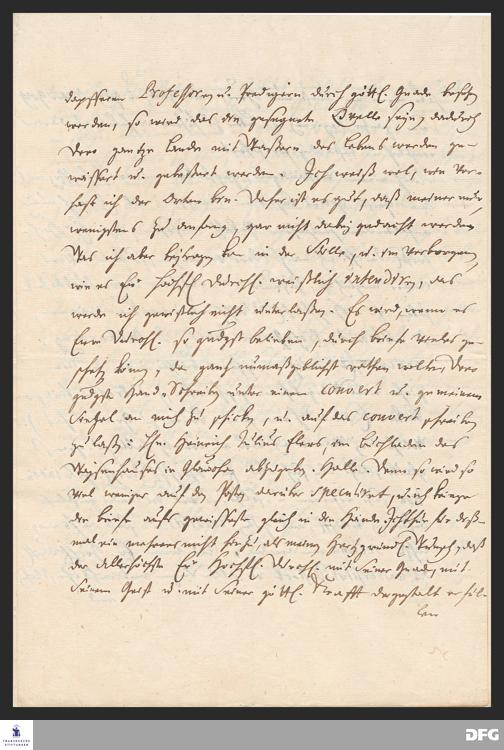 dapfferen Professoren u. Predigern durch göttl. Gnade besetzt
werden, so wird das die gesegnete Qvelle seyn, dadurch
Dero gantze Lande mit Wassern des Lebens werden ge-
wässert u. gebessert werden. Ich weiß wol, wie ver-
hast ich der Orten bin. Daher ist es gut, daß meiner nur,
wenigstens zu anfang, gar nicht dabey gedacht werde.
Was ich aber beytragen kan in der Stille, u. im verborgenen,
wie es Eu. Hochfl. Durchl. weißlich intendiren, das
werde ich gewißlich nicht unterlaßen. Es wird, wenn es
Eurer Durchl. so gnädgst belieben, durch briefe vieles ge-
schehen können, da gantz unmaßgeblichst rathen wolte, Dero
gnädgste Hand-Schreiben unter einem couvert u. gemeinem
Siegel an mich zu schicken, u. auf das couvert schreiben
zu laßen: Hn. Heinrich Julius Elers im Buchladen des
Waysenhauses in Glaucha abzugeben. Halle. Denn so wird so
viel weniger auf den Posten darüber speculiret, u. ich kriege
die briefe aufs gewisseste gleich in die Hände. Ich thue für dieß-
mal ein mehrers nicht hinzu, als meinen hertzgründl. Wunsch, daß
der Allerhöchste Eu. Hochfl. Durchl. mit Seiner Gnade, mit
Seinem Geist u. mit Seiner göttl. Krafft dergestalt erfül-
len
FRANCKESCHE
STIFTUNGEN
DFG